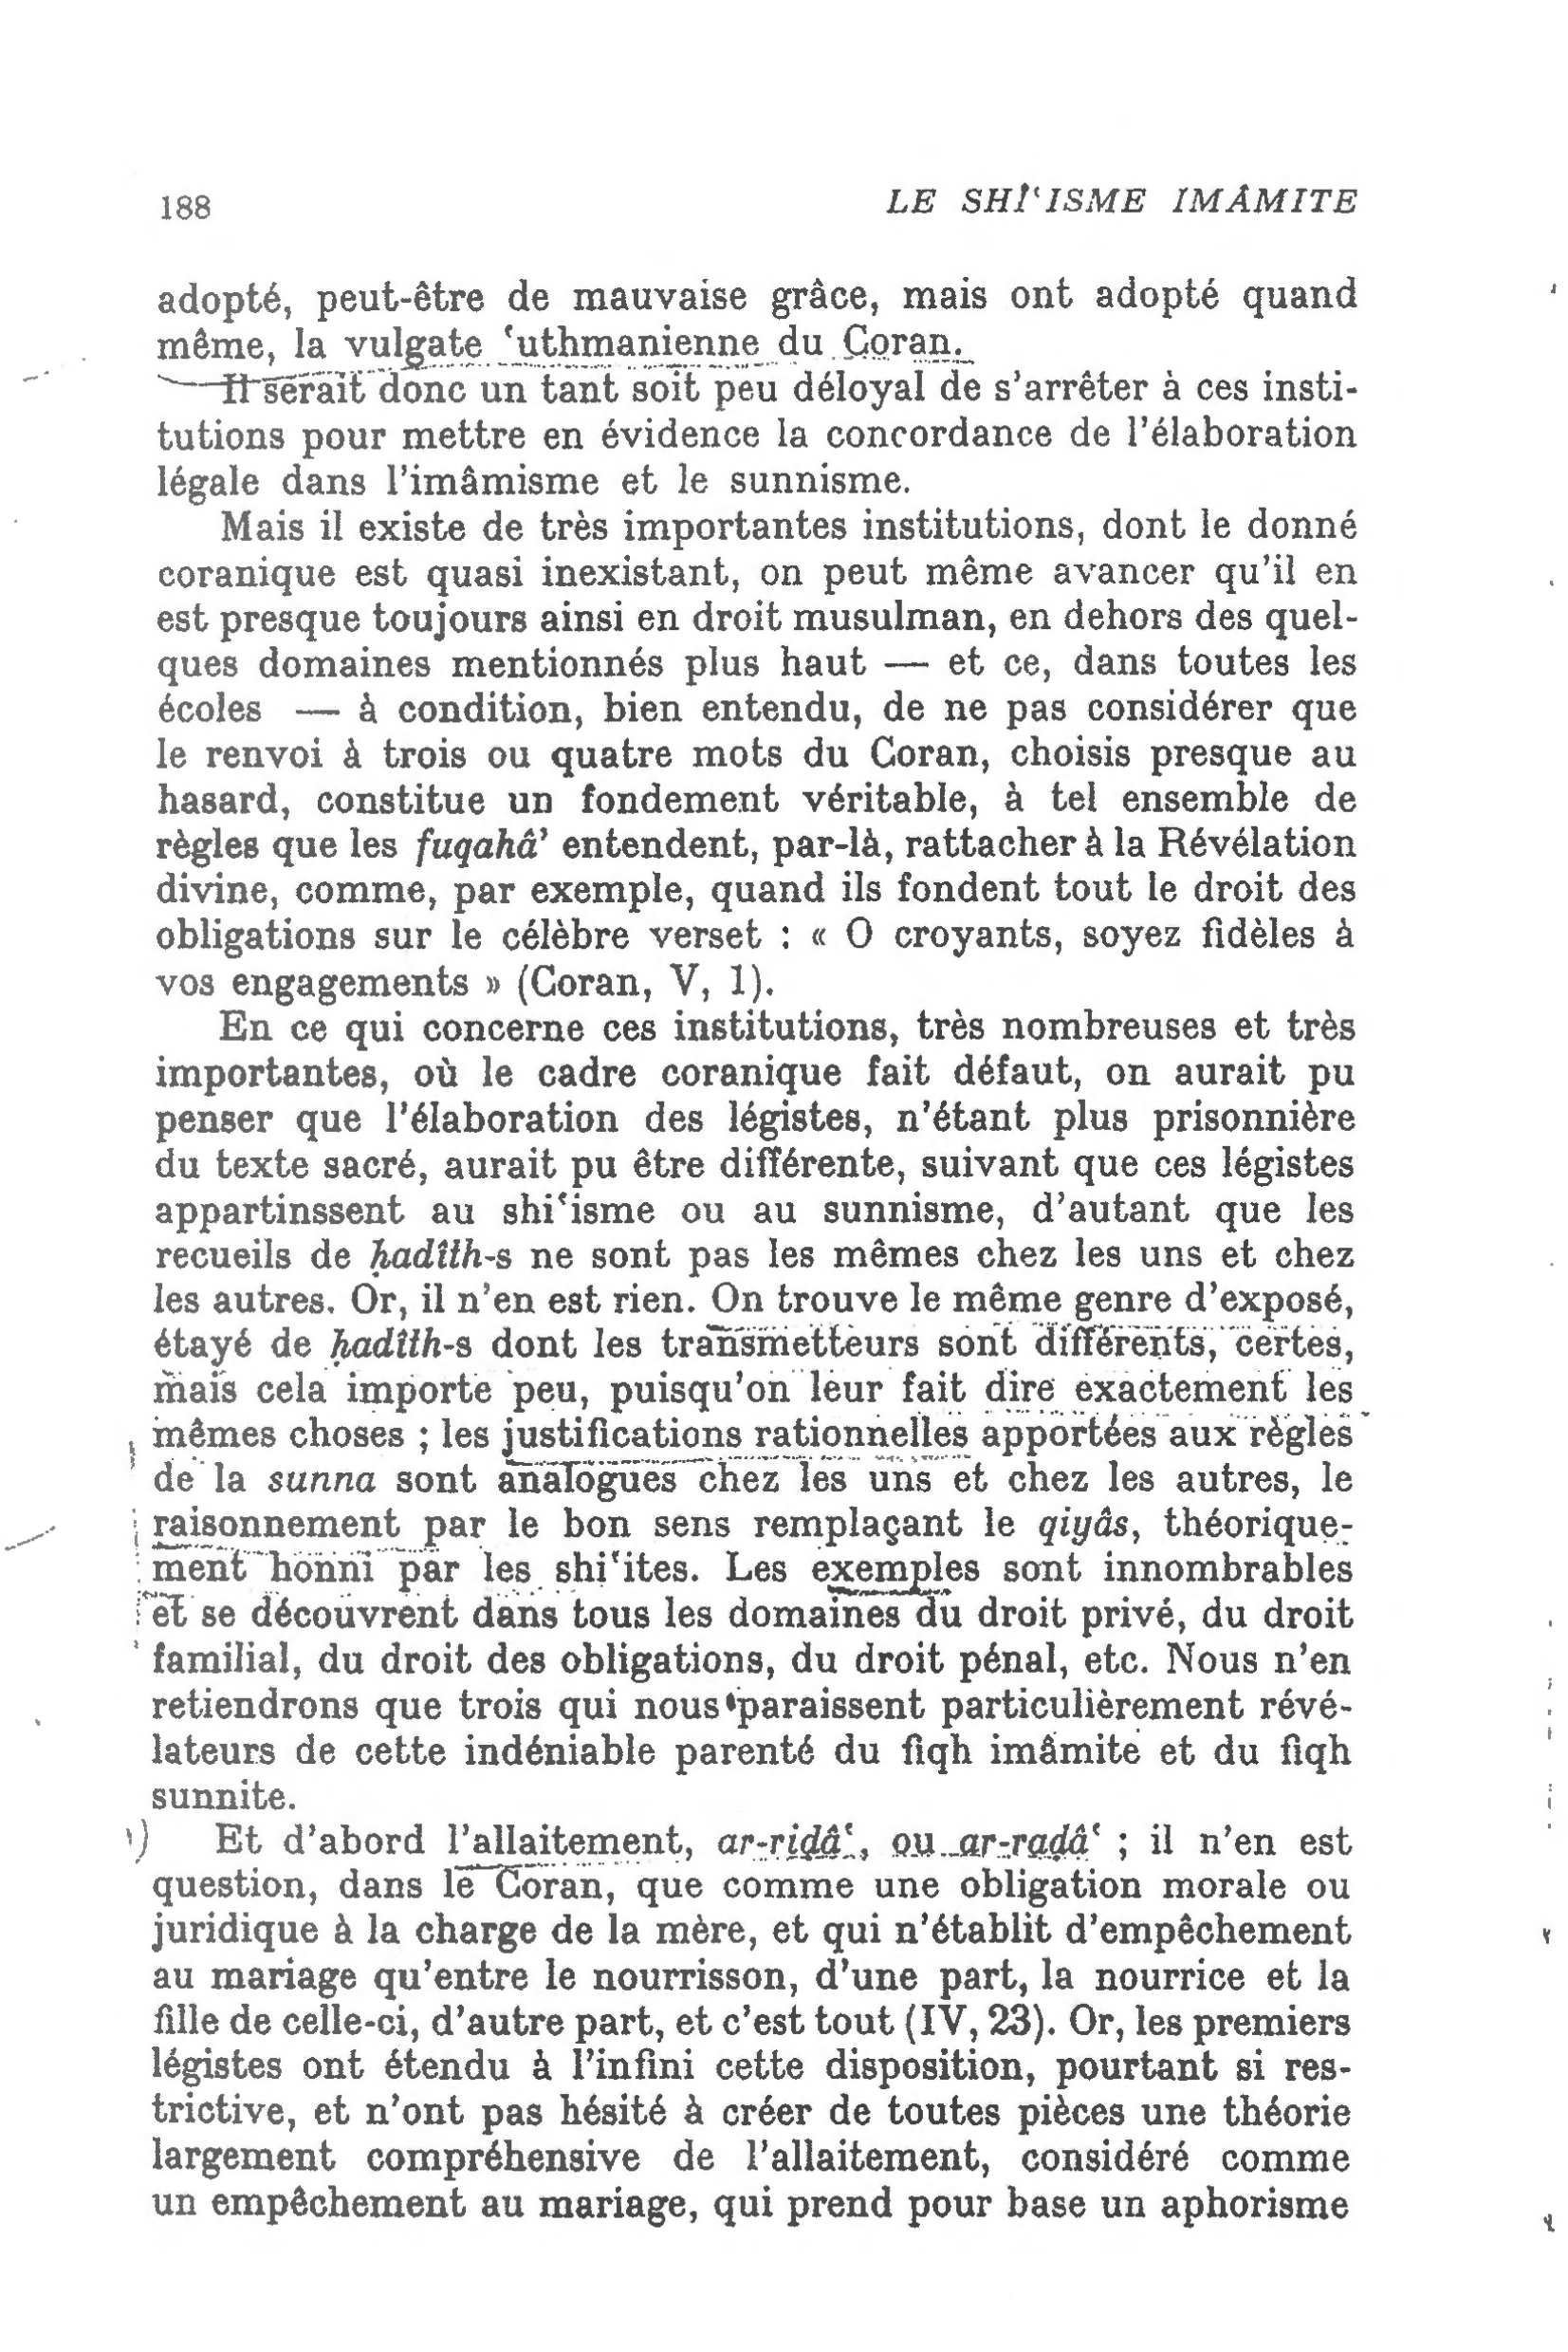 188
LE SHÎ‘ISME IMÂMITE
adopté, peut-être de mauvaise grâce, mais ont adopté quand
même, la vulgate ‘uthmanienne du Coran.
Il serait donc un tant soit peu déloyal de s’arrêter à ces insti-
tutions pour mettre en évidence la concordance de l’élaboration
légale dans l’imâmisme et le sunnisme.
Mais il existe de très importantes institutions, dont le donné
coranique est quasi inexistant, on peut même avancer qu’il en
est presque toujours ainsi en droit musulman, en dehors des quel-
ques domaines mentionnés plus haut — et ce, dans toutes les
écoles — à condition, bien entendu, de ne pas considérer que
le renvoi à trois ou quatre mots du Coran, choisis presque au
hasard, constitue un fondement véritable, à tel ensemble de
règles que les fuqahâ’ entendent, par-là, rattacher à la Révélation
divine, comme, par exemple, quand ils fondent tout le droit des
obligations sur le célèbre verset : « O croyants, soyez fidèles à
vos engagements » (Coran, V, 1).
En ce qui concerne ces institutions, très nombreuses et très
importantes, où le cadre coranique fait défaut, on aurait pu
penser que l’élaboration des légistes, n’étant plus prisonnière
du texte sacré, aurait pu être différente, suivant que ces légistes
appartinssent au shi‘isme ou au sunnisme, d’autant que les
recueils de ḥadîth-s ne sont pas les mêmes chez les uns et chez
les autres. Or, il n’en est rien. On trouve le même genre d’exposé,
étayé de ḥadîth-s dont les transmetteurs sont différents, certes,
mais cela importe peu, puisqu’on leur fait dire exactement les
mêmes choses ; les justifications rationnelles apportées aux règles
de la sunna sont analogues chez les uns et chez les autres, le
raisonnement par le bon sens remplaçant le qiyâs, théorique-
ment honni par les shi‘ites. Les exemples sont innombrables
et se découvrent dans tous les domaines du droit privé, du droit
familial, du droit des obligations, du droit pénal, etc. Nous n’en
retiendrons que trois qui nous paraissent particulièrement révé-
lateurs de cette indéniable parenté du fiqh imâmite et du fiqh
sunnite.
Et d’abord l’allaitement, ar-riḍâ‘, ou ar-raḍâ‘ ; il n’en est
question, dans le Coran, que comme une obligation morale ou
juridique à la charge de la mère, et qui n’établit d’empêchement
au mariage qu’entre le nourrisson, d’une part, la nourrice et la
fille de celle-ci, d’autre part, et c’est tout (IV, 23). Or, les premiers
légistes ont étendu à l’infini cette disposition, pourtant si res-
trictive, et n’ont pas hésité à créer de toutes pièces une théorie
largement compréhensive de l’allaitement, considéré comme
un empêchement au mariage, qui prend pour base un aphorisme